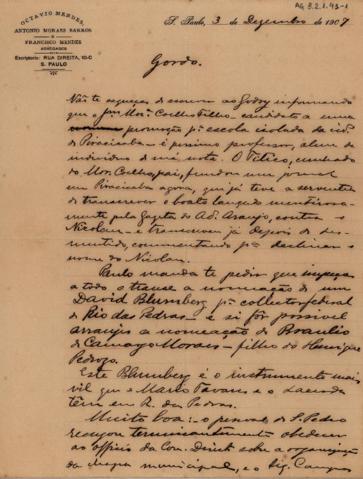 AG 3.2.1.43-1
OCTAVIO MENDES,
ANTONIO MORAES BARROS
E
FRANCISCO MENDES
ADVOGADOS
Escriptorio: RUA DIREITA, 10-C
S. PAULO
S. Paulo, 3 de Dezembro de 1907
Gordo.
Não te esqueças de escrever ao Godoy informando
que o Mor. Coelho Filho candidato a uma
promoção pª escola isolada da cid.
de Piracicaba é pessimo professor, alem de
individuo de má nota. O Tilico, cunhado
do Mor. Coelho, pai, fundou um jornal
em Piracicaba agora, que já teve a
de transcrever o boato lançado mentirosa-
mente pela Gazeta do Ad. Araujo, contra o
Nicolau e transcreveu já depois de des-
mentido, commentando pª
nome do Nicolau.
Paulo manda te pedir que
a todo o transe a nomeação de um
David Blumberg pª collector federal
de Rio das Pedras e si fôr possivel
arranjes a nomeação de Braulio
de Camargo Moraes filho do Henrique
Pedroso.
Este Blumberg é o instrumento mais
vil que o Mario Tavares e o Lacerda
têm em R. das Pedras.
Muito boa: o pessoal de S. Pedro
terminantemente obedecer
ao officio da Com. Direct. sobre a organização
da chapa municipal, e o Sig. Campos